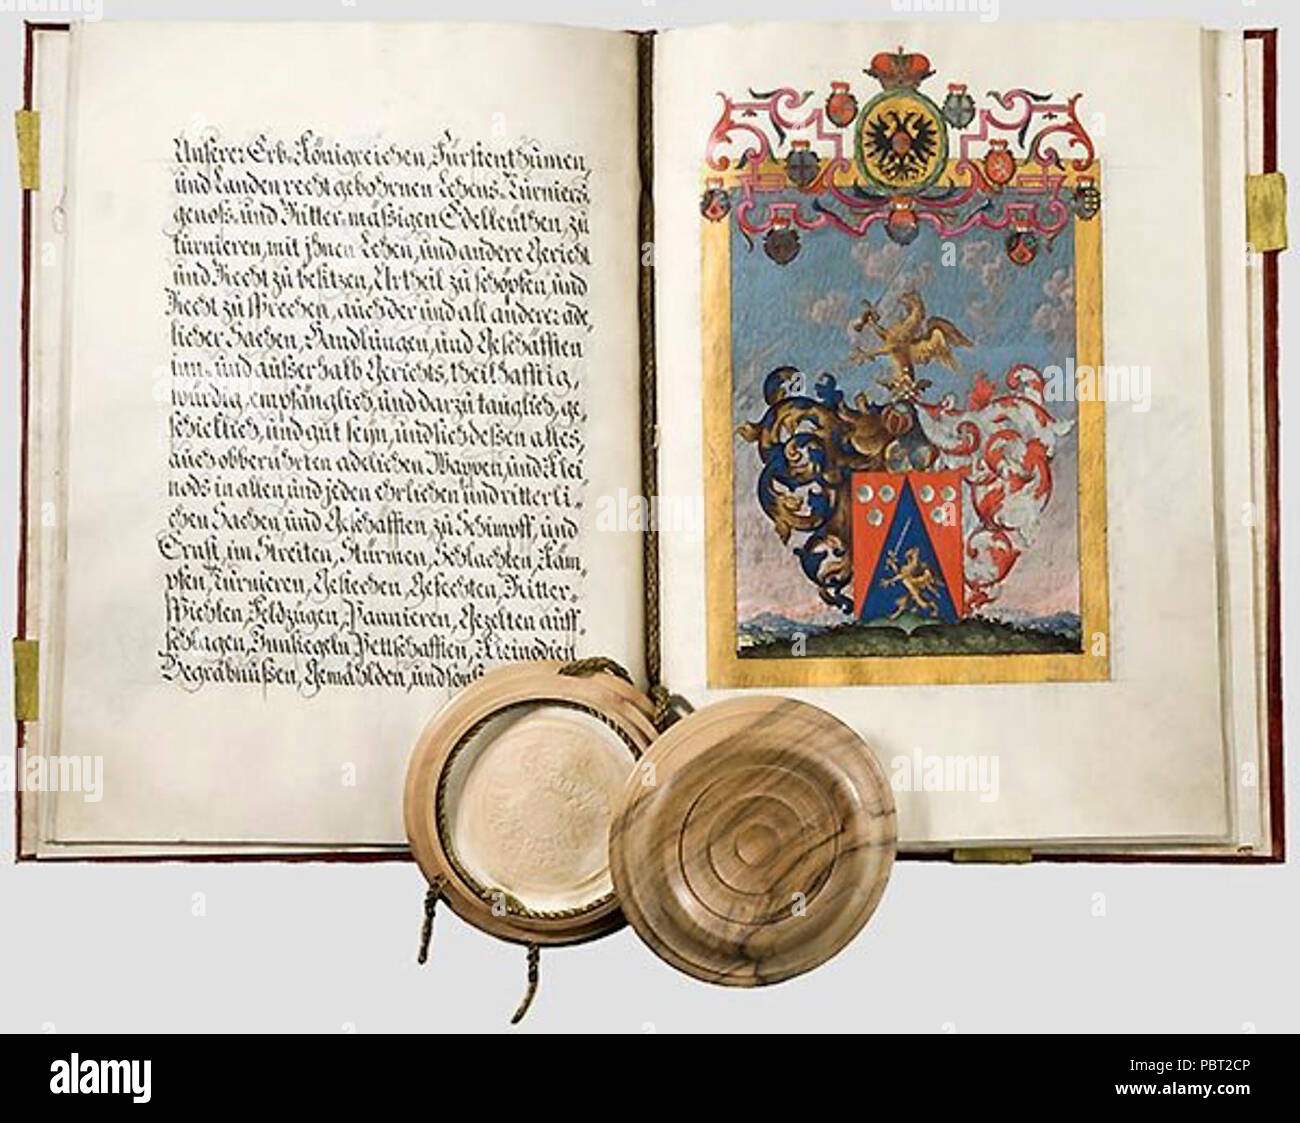 Unserer Erb-Königreichen, Fürstenthümen,
und Landen recht gebohrnen Lehens-Turniers,
genoß- und Ritter-mäßigen Edelleuthen, zu
turnieren, mit jhnen Lehen, und andere Gericht
und Recht zu besitzen, Urtheil zu schöpfen, und
Recht zu sprechen, auch der und all anderer ade,
licher Sachen, Handlungen, und Geschäfften
inn- und außerhalb Gerichts, theilhafftig,
würdig, empfänglich, und darzu tauglich, ge,
schicklich, und gut seyn, und sich deßen alles,
auch obberührten adelichen Wappen, und Klei
nods in allen und jeden ehrlichen und ritterli,
chen Sachen und Geschäfften, zu Schimpff, und
Ernst, im Streiten, Stürmen, Schlachten, Käm,
pfen, Turnieren, Gestechen, Gefechten, Ritter-
Spiehlen, Feldzügen, Pannieren, Gezelten auff-
schlagen, Innsiegeln, Pettschafften, Kleinodien
Begräbnüßen, Gemählden, und sonst
a
alamy
alamy
Image ID: PBT2CP
www.alamy.com